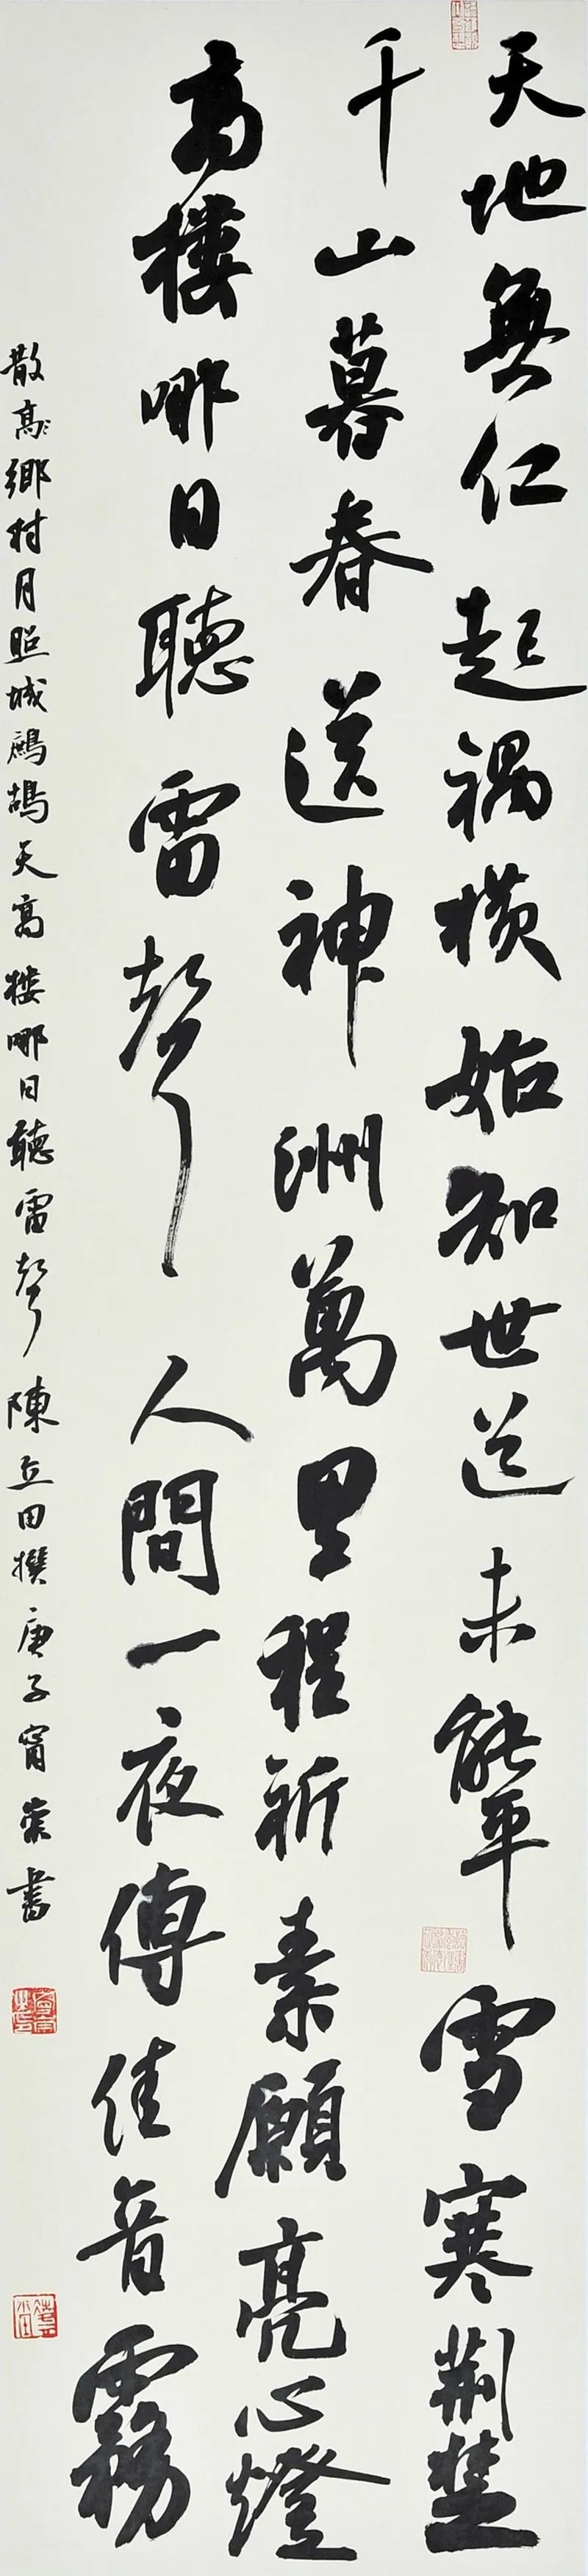 天地無仁起禍横始知世道未能平雪寒荆楚
千山暮春送神洲萬里程祈素願亮心燈
高樓哪日聽雷聲人間一夜傳佳音霧
散高高鄉村月照城鷓鴣天高樓哪日聽雷聲陳立田撰庚子甯崇書